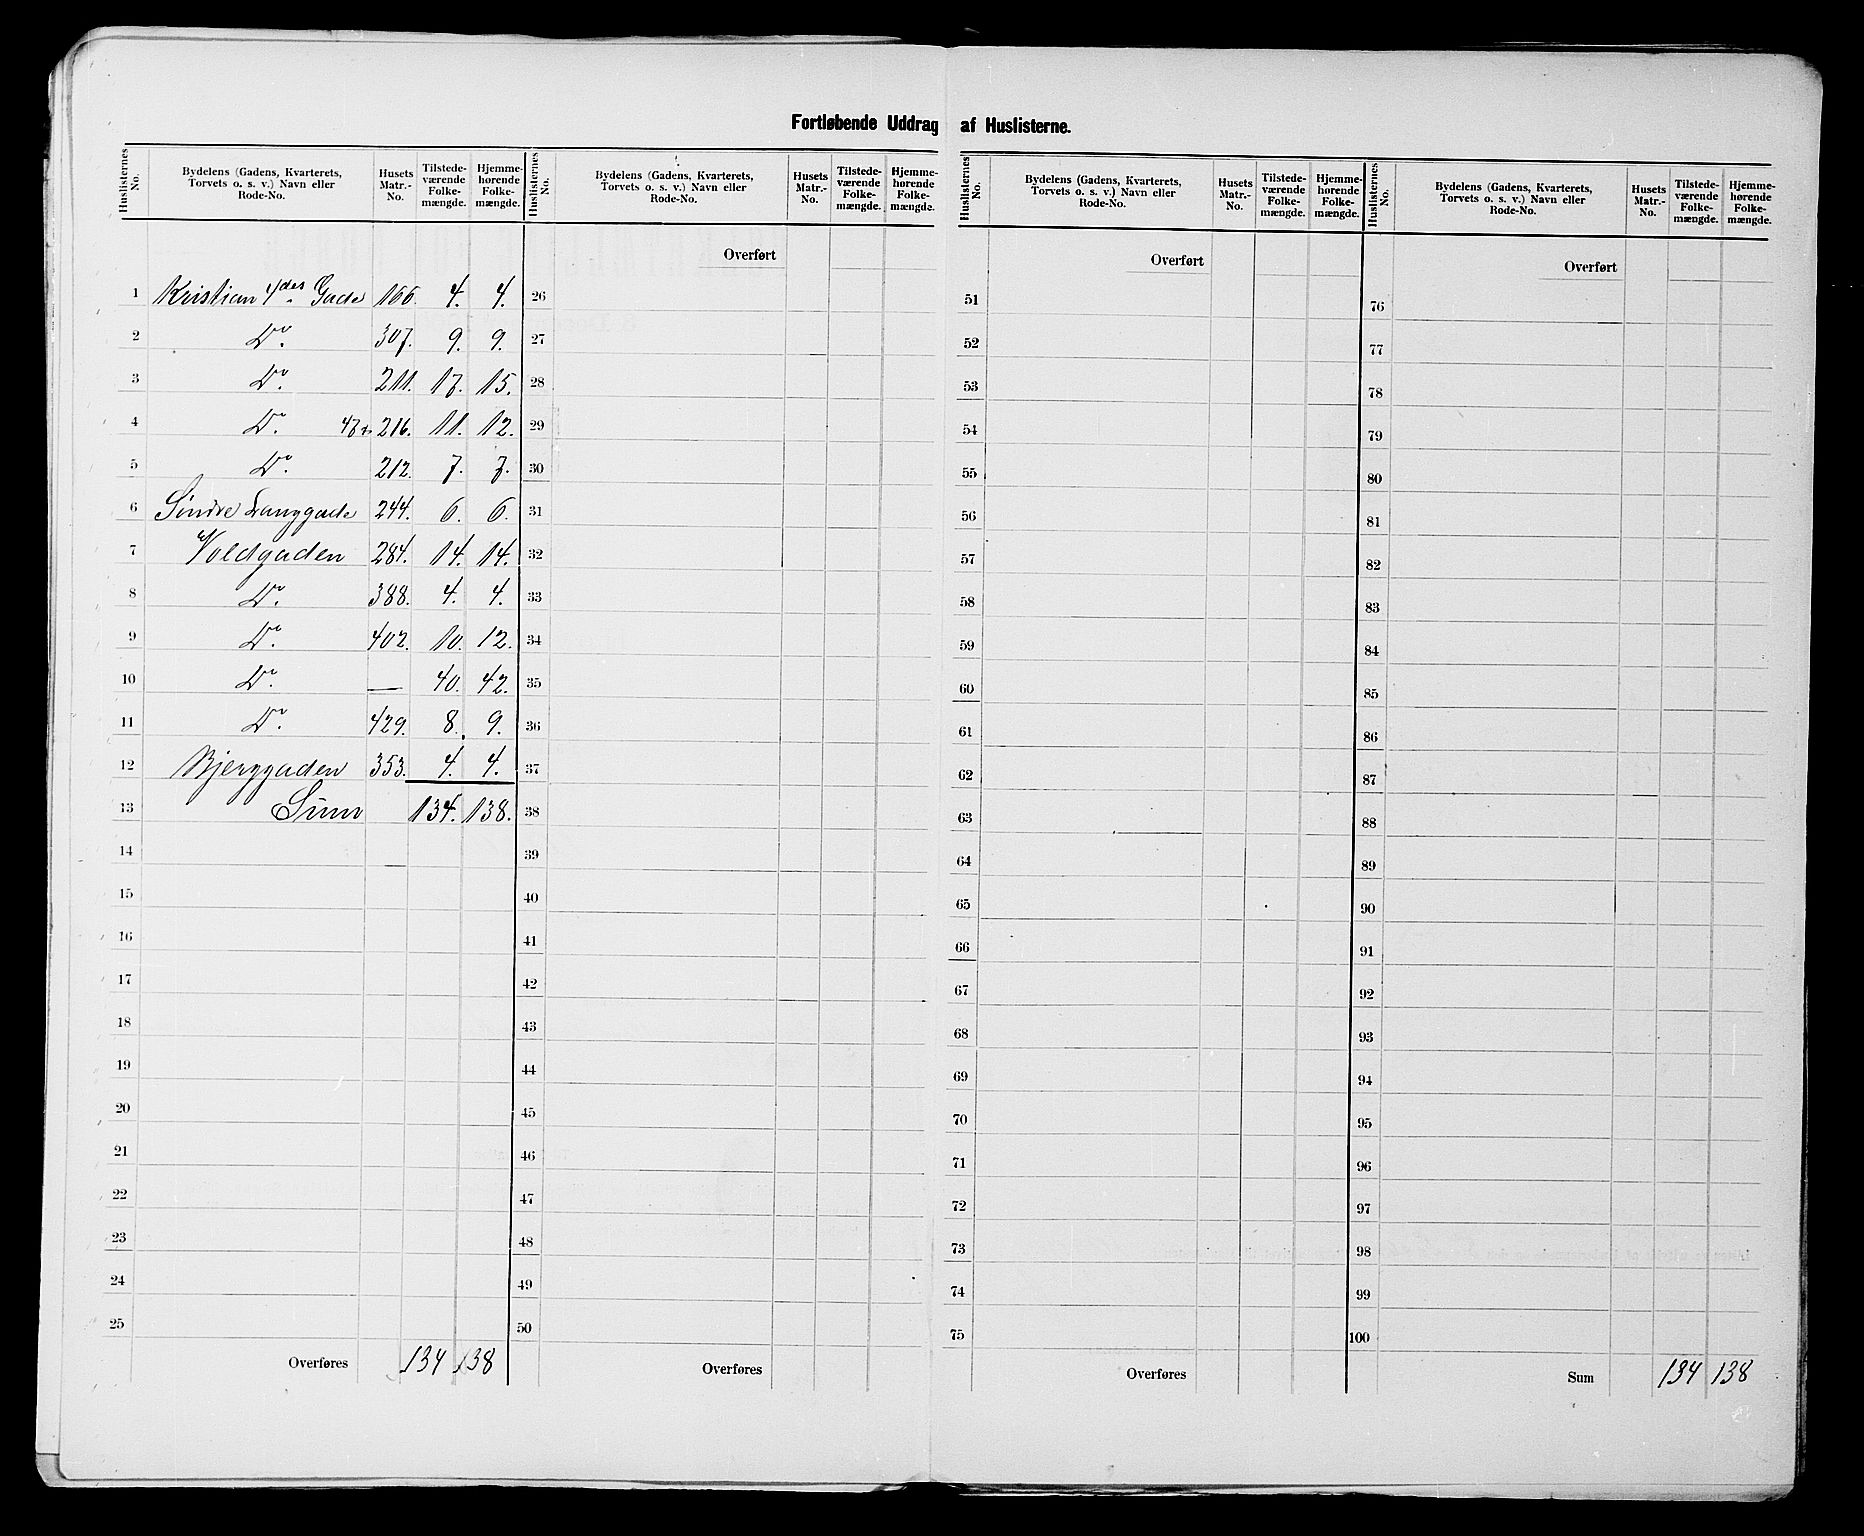 Fortløbende Uddrag af Huslisterne.
Huslisternes No. | Bydelens (Gadens, Kvarterets, Torvets o. s. v.) Navn eller Rode-No. | Husets Matr.-No. | Tilstedeværende Folkemængde. | Hjemmehørende Folkemængde.
1 Kristian 4des Gade 166. 4. 4.
2 Do. 307. 9. 9.
3 Do. 211. 17. 15.
4 Do. 216. 11. 12.
5 Do. 212. 7. 7.
6 Søndre Langgade 244. 6. 6.
7 Voldgaden 284. 14. 14.
8 Do. 388. 4. 4.
9 Do. 402. 10. 12.
10 Do. — 40. 42.
11 Do. 429. 8. 9.
12 Bjerggaden 353. 4. 4.
13 Sum 134. 138.
14
15
16
17
18
19
20
21
22
23
24
25
Overføres 134 138
Huslisternes No. | Bydelens (Gadens, Kvarterets, Torvets o. s. v.) Navn eller Rode-No. | Husets Matr.-No. | Tilstedeværende Folkemængde. | Hjemmehørende Folkemængde.
Overført
26
27
28
29
30
31
32
33
34
35
36
37
38
39
40
41
42
43
44
45
46
47
48
49
50
Overføres
Huslisternes No. | Bydelens (Gadens, Kvarterets, Torvets o. s. v.) Navn eller Rode-No. | Husets Matr.-No. | Tilstedeværende Folkemængde. | Hjemmehørende Folkemængde.
Overført
51
52
53
54
55
56
57
58
59
60
61
62
63
64
65
66
67
68
69
70
71
72
73
74
75
Overføres
Huslisternes No. | Bydelens (Gadens, Kvarterets, Torvets o. s. v.) Navn eller Rode-No. | Husets Matr.-No. | Tilstedeværende Folkemængde. | Hjemmehørende Folkemængde.
Overført
76
77
78
79
80
81
82
83
84
85
86
87
88
89
90
91
92
93
94
95
96
97
98
99
100
Sum 134 138